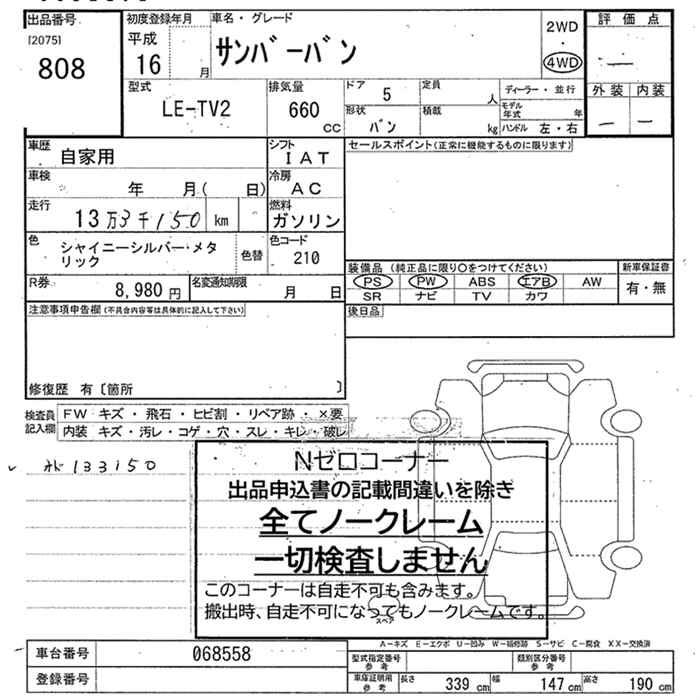 出品番号
[2075]
808
初度登録年月
平成
16 月
車名・グレード
サンバーバン
2WD
・
4WD
評価点
―
外装 内装
― ―
型式
LE-TV2
排気量
660
CC
ドア 5
定員 人
形状
バン
積載 kg
ディーラー・並行
モデル年式 年
ハンドル 左・右
車歴
自家用
シフト
IAT
車検
年 月( 日)
冷房
AC
走行
13万3千150 km
燃料
ガソリン
色
シャイニーシルバー・メタ
リック
色替
色コード
210
R券
8,980 円
名変通知期限
月 日
セールスポイント(正常に機能するものに限ります)
装備品 (純正品に限り○をつけてください)
PS PW ABS エアB AW
SR ナビ TV カワ
新車保証書
有・無
後日品
注意事項申告欄(不具合内容等は具体的に記入して下さい)
修復歴 有〔箇所 〕
検査員
記入欄
FW キズ・飛石・ヒビ割・リペア跡・×要
内装 キズ・汚レ・コゲ・穴・スレ・キレ・破レ
133150
Nゼロコーナー
出品申込書の記載間違いを除き
全てノークレーム
一切検査しません
このコーナーは自走不可も含みます。
搬出時、自走不可になってもノークレームです。
スペア
A－キズ E－エクボ U－凹み W－補修跡 S－サビ C－腐食 XX－交換済
車台番号
068558
登録番号
型式指定番号
参考
類別区分番号
参考
車庫証明用
参考
長さ 339 cm
幅 147 cm
高さ 190 cm